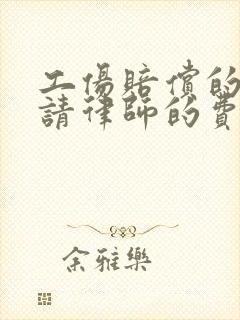 工傷賠償的
請律師的費
余雅樂